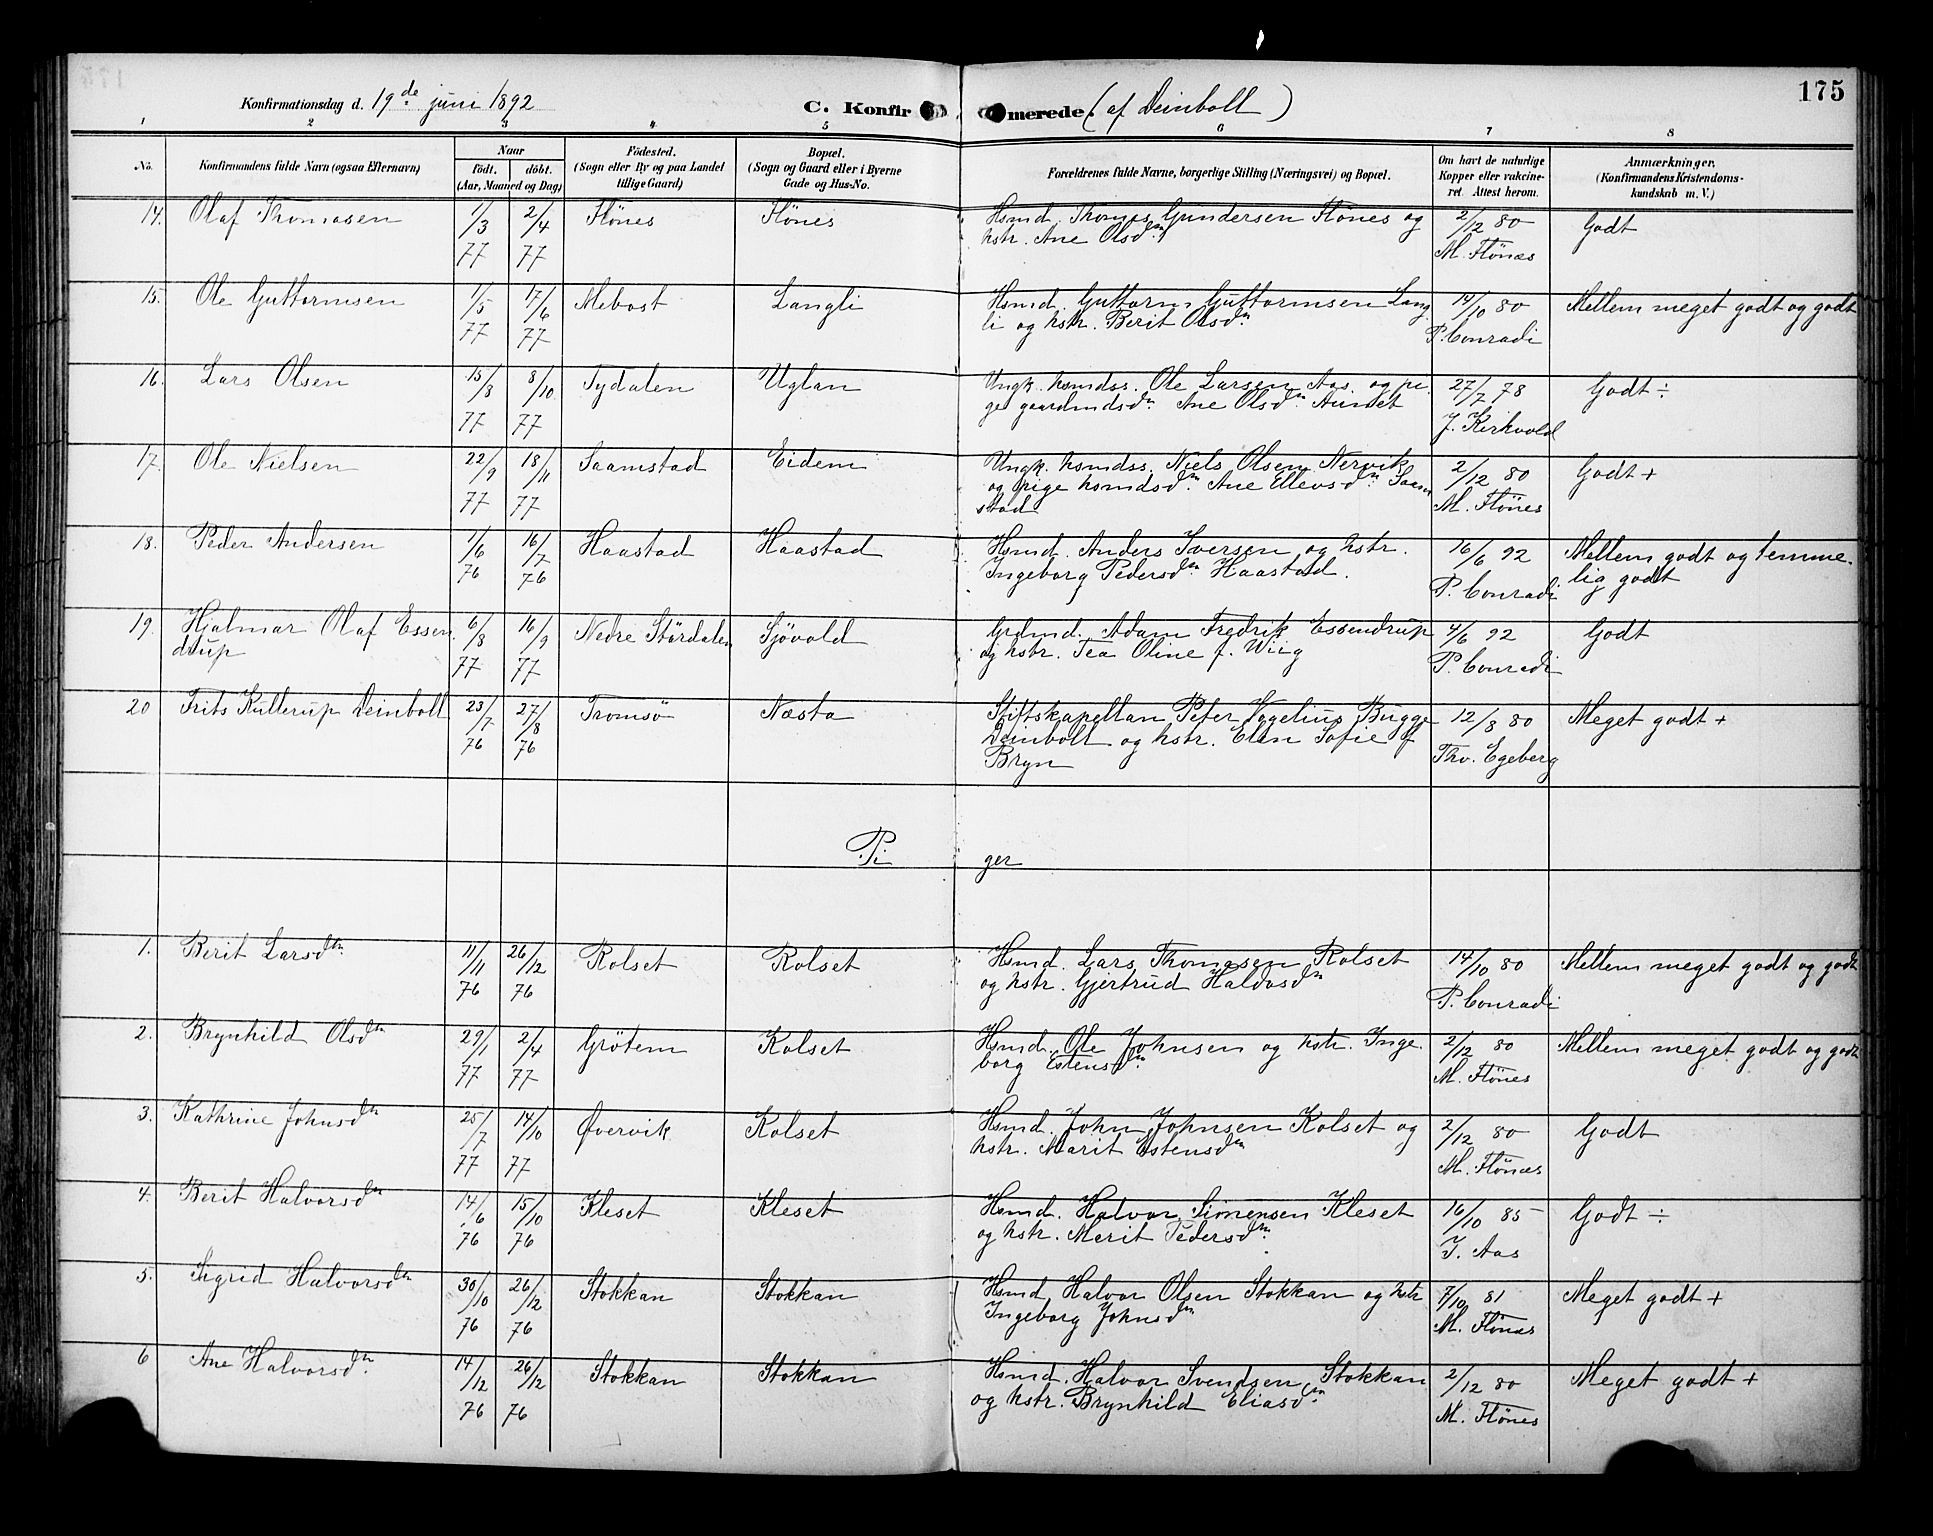 175
Konfirmationsdag d. 19de juni 1892 C. Konfirmerede. (af Deinboll)
1 2 3 4 5 6 7 8
No. Konfirmandens fulde Navn (ogsaa Efternavn) Naar födt. döbt. (Aar, Maaned og Dag) Födested. (Sogn eller By og paa Landet tillige Gaard) Bopæl. (Sogn og Gaard eller i Byerne Gade og Hus-No. Forældrenes fulde Navne, borgerlige Stilling (Næringsvei) og Bopæl. Om havt de naturlige Kopper eller vakcineret. Attest herom. Anmærkninger, (Konfirmandens Kristendomskundskab m. V.)
14. Olaf Thomasen 1/3 77 2/4 77 Flönes Flönes Hsmd. Thomas Gundersen Flönes og
hstr. Ane Olsdn. 2/12 80 M. Flönæs Godt
15. Ole Guttormsen 1/5 77 17/6 77 Mebost Langli Hsmd. Guttorm Guttormsen Lang
li og hstr. Berit Olsdn. 14/10 80 P. Conradi Mellem meget godt og godt
16. Lars Olsen 15/8 77 8/10 77 Tydalen Uglan Ungk. hsmdss. Ole Larsen Aas. og pi.
ge gaardmdsdn. Ane Olsdn. Aunet 27/7 78 J. Kirkvold Godt ÷
17. Ole Nielsen 22/9 77 18/11 77 Saamstad Eidem Ungk. hsmdss. Niels Olsen Nervik
og pige hsmdsdn. Ane Ellevsdn. Saam
stad 2/12 80 M. Flönes Godt +
18. Peder Andersen 1/6 76 16/7 76 Haastad Haastad Hsmd. Anders Iversen og hstr.
Ingeborg Pedersdn. Haastad. 16/6 92 P. Conradi Mellem godt og temme-
lig godt
19. Hjalmar Olaf Essen
drup 6/8 77 16/9 77 Nedre Stördalen Sjövold Grdmd. Adam Fredrik Essendrup
og hstr. Tea Oline f. Wiig 4/6 92 P. Conradi Godt
20 Frits Kullerup Deinboll 23/7 76 27/8 76 Tromsø Næsta Stiftskapellan Peter Vogelius Bugge
Deinboll og hstr. Elen Sofie f
Bryn 12/8 80 Thv. Egeberg Meget godt +
Pi ger
1. Berit Larsdn. 11/11 76 26/12 76 Rolset Rolset Hsmd. Lars Thomasen Rolset
og hstr. Gjertrud Haldosdn 14/10 80 P. Conradi Mellem meget godt og godt
2. Brynhild Olsdn 29/1 77 2/4 77 Grötem Kolset Hsmd. Ole Johnsen og hstr. Inge.
borg Estensdn. 2/12 80 M. Flönes Mellem meget godt og godt
3. Kathrine Johnsdn 25/7 77 14/10 77 Øvervik Kolset Hsmd. John Johnsen Kolset og
hstr. Marit Estensdn 2/12 80 M. Flönæs Godt
4. Berit Halvorsdn 14/6 76 15/10 76 Kleset Kleset Hsmd. Halvor Simensen Kleset
og hstr. Marit Pedersdn. 16/10 85 J. Aas Godt ÷
5. Sigrid Halvorsdn 30/10 76 26/12 76 Stokkan Stokkan Hsmd. Halvor Olsen Stokkan og hstr
Ingeborg Johnsdn 7/10 81 M. Flönæs Meget godt +
6 Ane Halvorsdn. 14/12 76 26/12 76 Stokkan Stokkan Hsmd. Halvor Svendsen Stokkan
og hstr. Brynhild Eliasdn. 2/12 80 M. Flönes Meget godt +